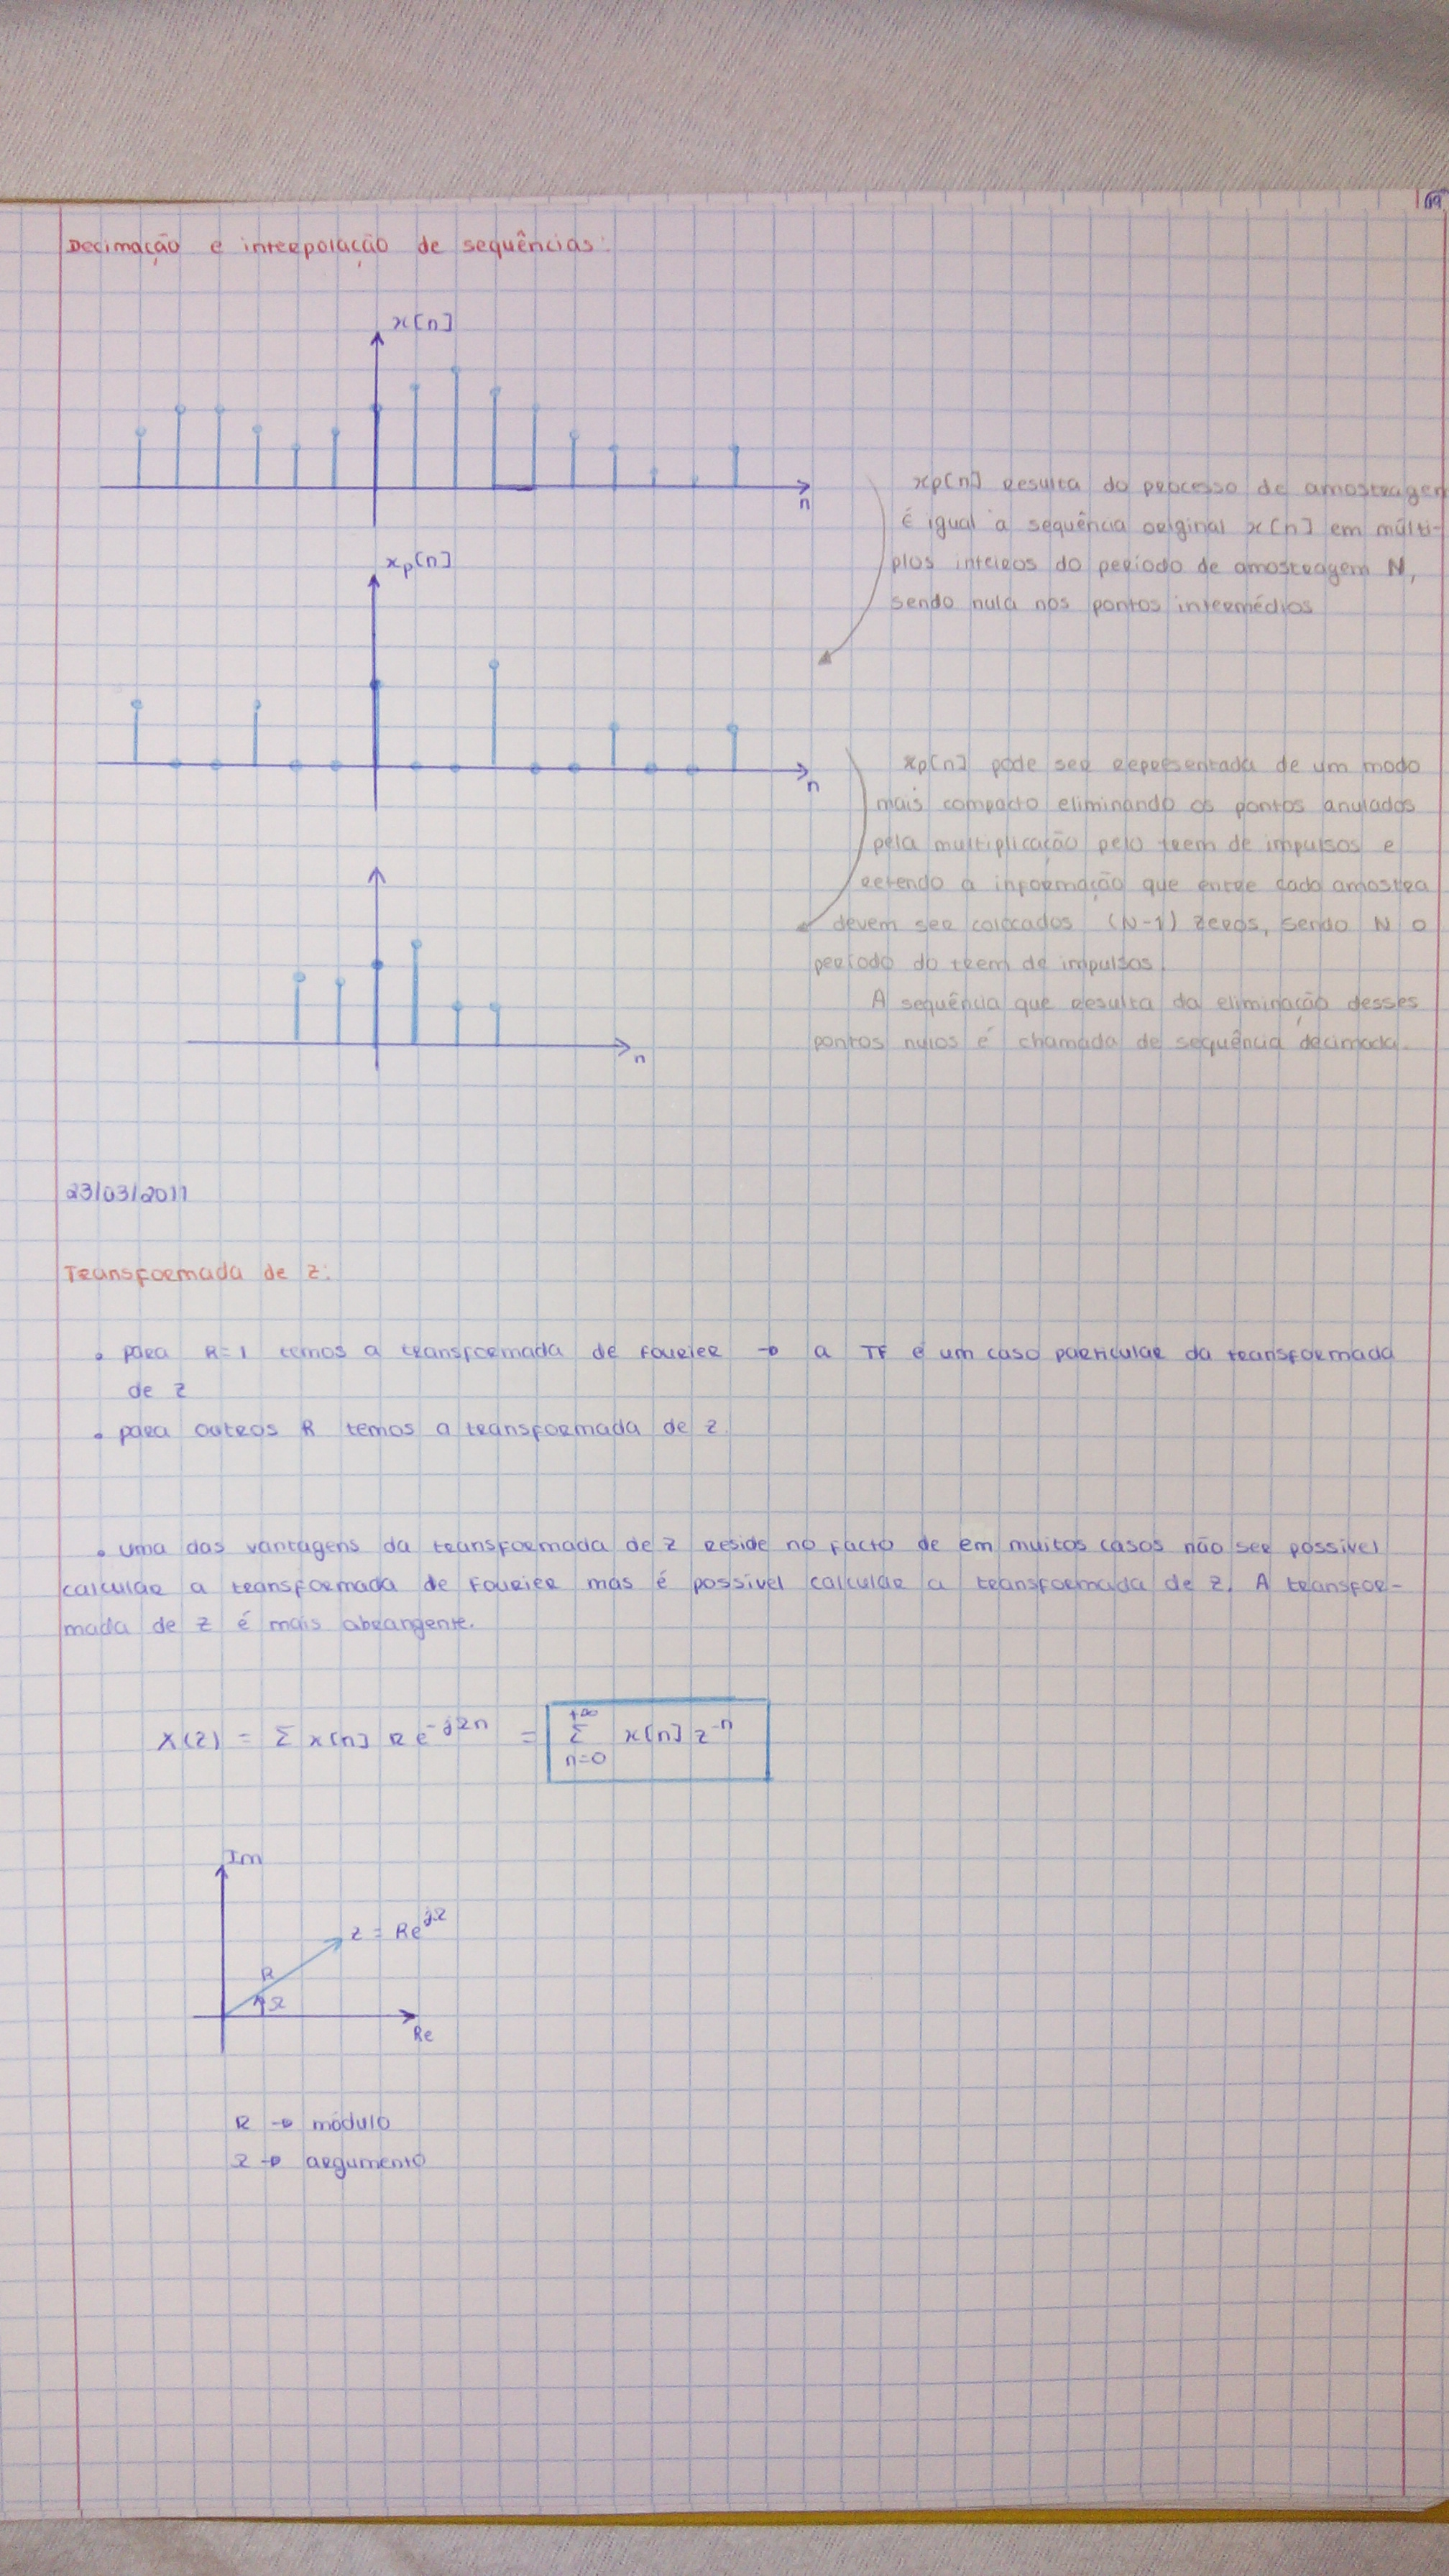 19
Decimação e interpolação de sequências:
x[n]
n
xp[n] resulta do processo de amostragem
é igual a sequência original x[n] em múlti-
plos inteiros do período de amostragem N,
sendo nula nos pontos intermédios
xp[n]
n
xp[n] pode ser representada de um modo
mais compacto eliminando os pontos anulados
pela multiplicação pelo trem de impulsos e
retendo a informação que entre cada amostra
devem ser colocados (N-1) zeros, sendo N o
período do trem de impulsos.
A sequência que resulta da eliminação desses
pontos nulos é chamada de sequência decimada.
n
23/03/2011
Transformada de Z:
• para R=1 temos a transformada de Fourier → a TF é um caso particular da transformada
de Z
• para outros R temos a transformada de Z.
• uma das vantagens da transformada de Z reside no facto de em muitos casos não ser possível
calcular a transformada de Fourier mas é possível calcular a transformada de Z. A transfor-
mada de Z é mais abrangente.
X(Z) = Σ x[n] R e^-jΩn = Σ n=0 +∞ x[n] z^-n
Im
z = Re^jΩ
R
Ω
Re
R → módulo
Ω → argumento